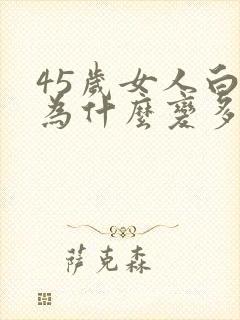 45歲女人白
為什麼變多
萨克森